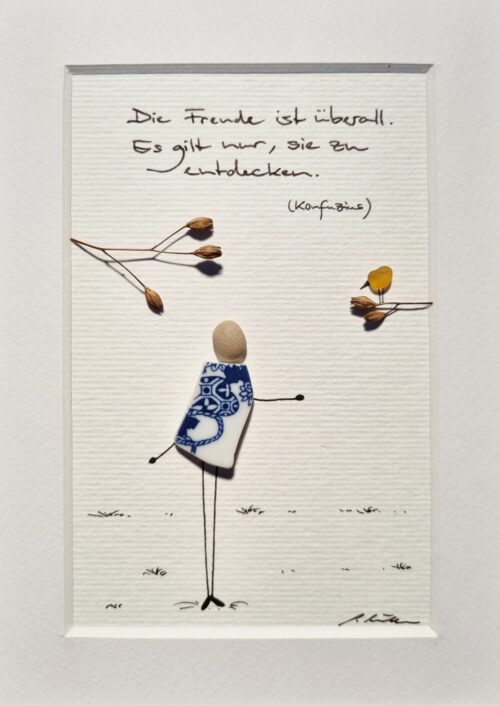 Die Freude ist überall.
Es gilt nur, sie zu
entdecken.
(Konfuzius)